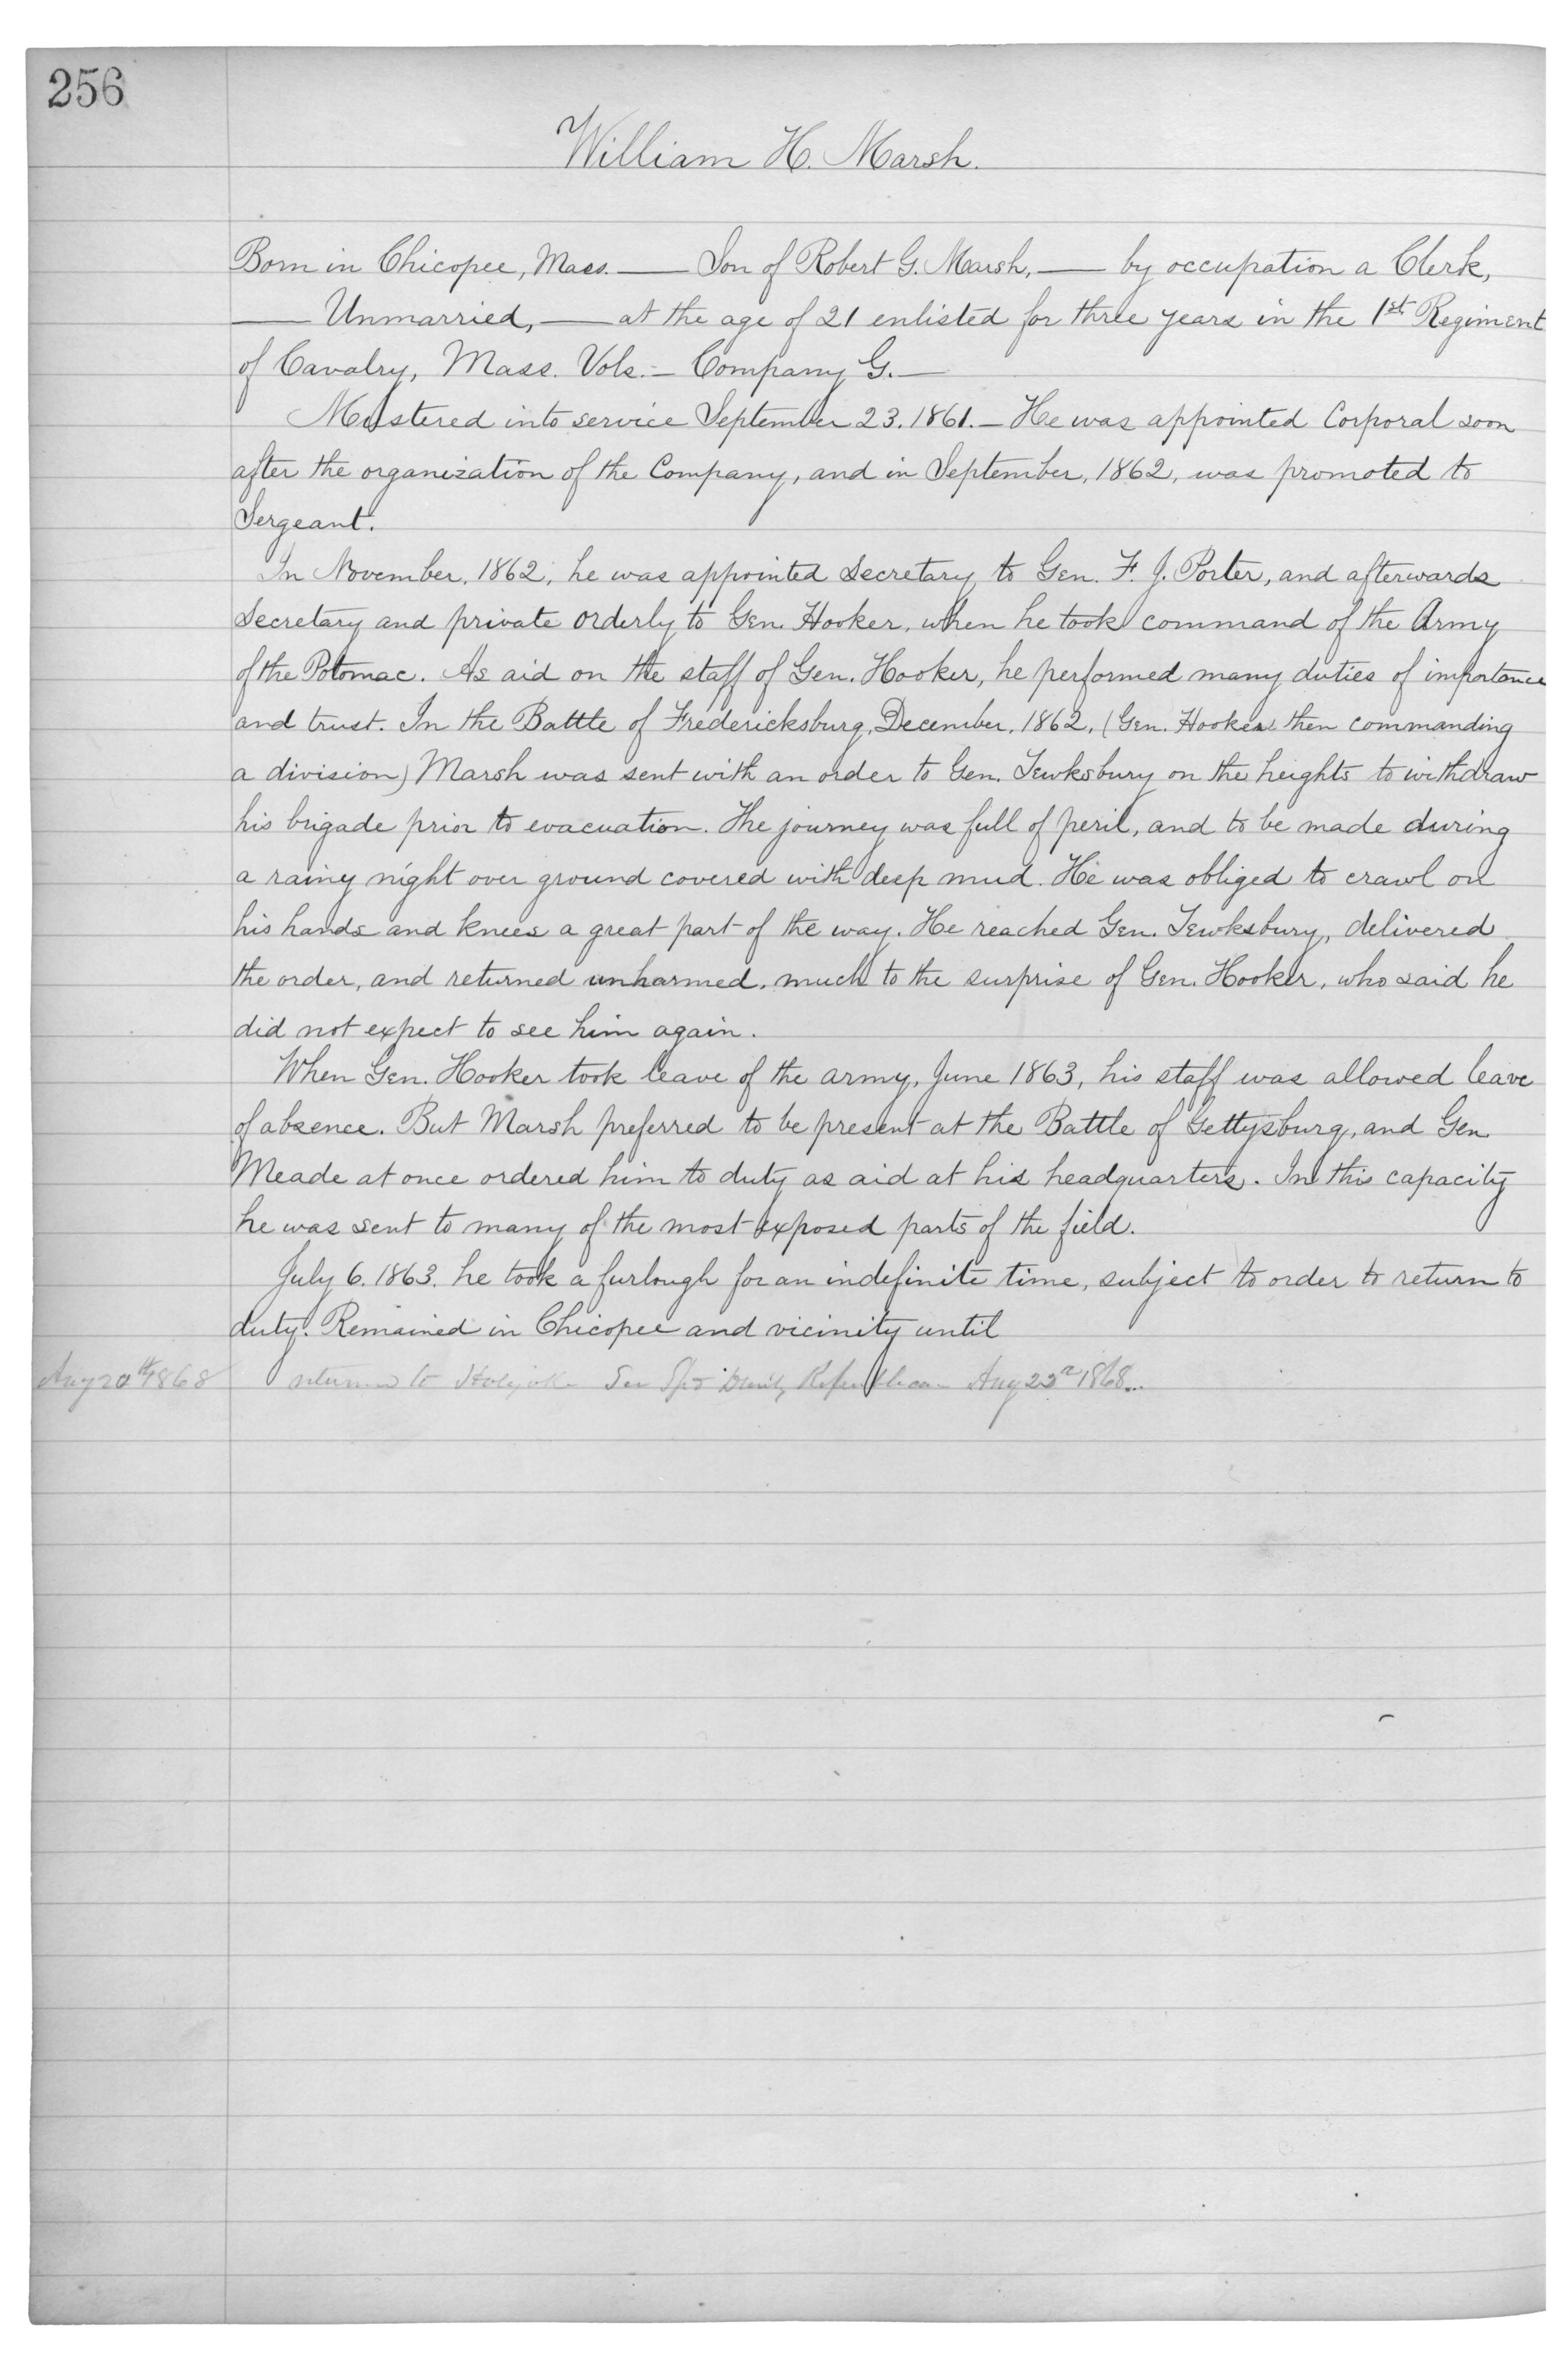 256
William H. Marsh.
Born in Chicopee, Mass. — Son of Robert G. Marsh, — by occupation a Clerk,
— Unmarried, — at the age of 21 enlisted for three years in the 1st Regiment
of Cavalry, Mass. Vols. — Company G. —
Mustered into service September 23. 1861. — He was appointed Corporal soon
after the organization of the Company, and in September, 1862, was promoted to
Sergeant.
In November, 1862, he was appointed Secretary to Gen. F. J. Porter, and afterwards
Secretary and private orderly to Gen. Hooker, when he took command of the Army
of the Potomac. As aid on the staff of Gen. Hooker, he performed many duties of importance
and trust. In the Battle of Fredericksburg, December, 1862, (Gen. Hooker then commanding
a division) Marsh was sent with an order to Gen. Tewksbury on the heights to withdraw
his brigade prior to evacuation. The journey was full of peril, and to be made during
a rainy night over ground covered with deep mud. He was obliged to crawl on
his hands and knees a great part of the way. He reached Gen. Tewksbury, delivered
the order, and returned unharmed, much to the surprise of Gen. Hooker, who said he
did not expect to see him again.
When Gen. Hooker took leave of the army, June 1863, his staff was allowed leave
of absence. But Marsh preferred to be present at the Battle of Gettysburg, and Gen.
Meade at once ordered him to duty as aid at his headquarters. In this capacity
he was sent to many of the most exposed parts of the field.
July 6. 1863. he took a furlough for an indefinite time, subject to order to return to
duty. Remained in Chicopee and vicinity until
Aug 20th 1868 returned to Holyoke See Republican Aug 22d 1868